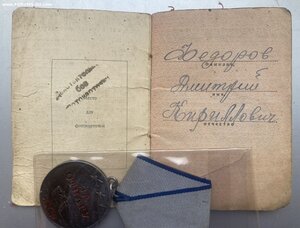 Место
для
фотокарточки
Федоров
фамилия
Дмитрий
имя
Кириллович
отчество
ЗА
ОТВАГУ